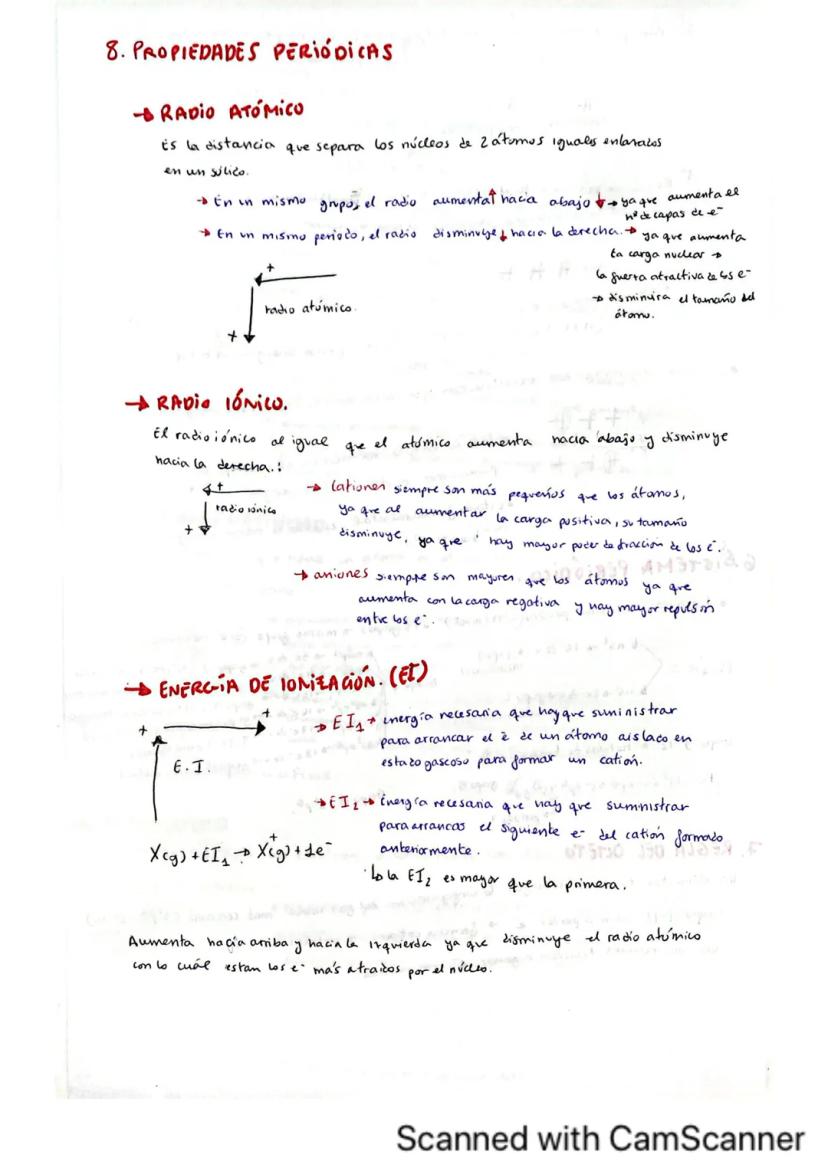 8. PROPIEDADES PERIÓDICAS
→ RADIO ATÓMICO
Es la distancia que separa los núcleos de 2 átomos iguales enlazados
en un sólido.
→ En un mismo grupo, el radio aumenta↑ hacia abajo ↓→ ya que aumenta el
nº de capas de e-
→ En un mismo periodo, el radio disminuye↓ hacia la derecha.→ ya que aumenta
la carga nuclear →
la fuerza atractiva de los e-
→ disminuira el tamaño del
átomo.
+
radio atómico.
+
→ RADIO IÓNICO.
El radio iónico al igual que el atómico aumenta hacia abajo y disminuye
hacia la derecha.:
+
radio iónico
+
→ Cationes siempre son más pequeños que los átomos,
ya que al aumentar la carga positiva, su tamaño
disminuye, ya que hay mayor poder de atracción de los e-.
→ aniones siempre son mayores que los átomos ya que
aumenta con la carga negativa y hay mayor repulsión
entre los e-.
→ ENERGÍA DE IONIZACIÓN. (EI)
+ +
E.I.
X(g) + EI1 → X+(g) + 1e-
→ EI1 → energía necesaria que hay que suministrar
para arrancar el e- de un átomo aislado en
estado gascoso para formar un catión.
→ EI2 → Energía necesaria que hay que summistrar
para arrancar el siguiente e- del catión formado
anteriormente.
↳ la EI2 es mayor que la primera.
Aumenta hacia arriba y hacia la izquierda ya que disminuye el radio atómico
con lo cuál estan los e- más atraidos por el núcleo.
Scanned with CamScanner